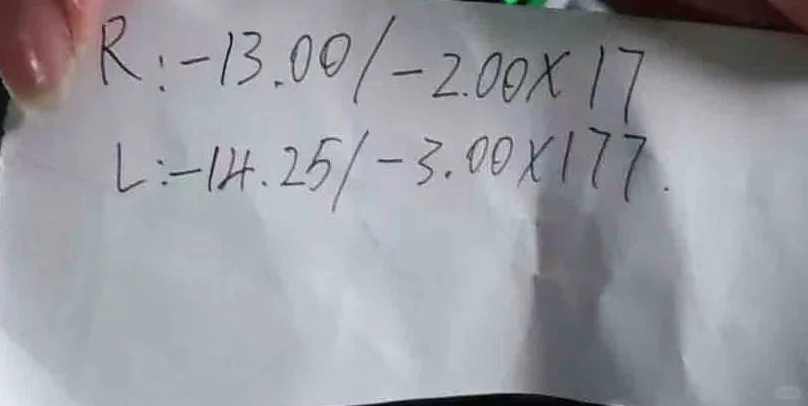 R:-13.00/-2.00X17
L:-14.25/-3.00X177.